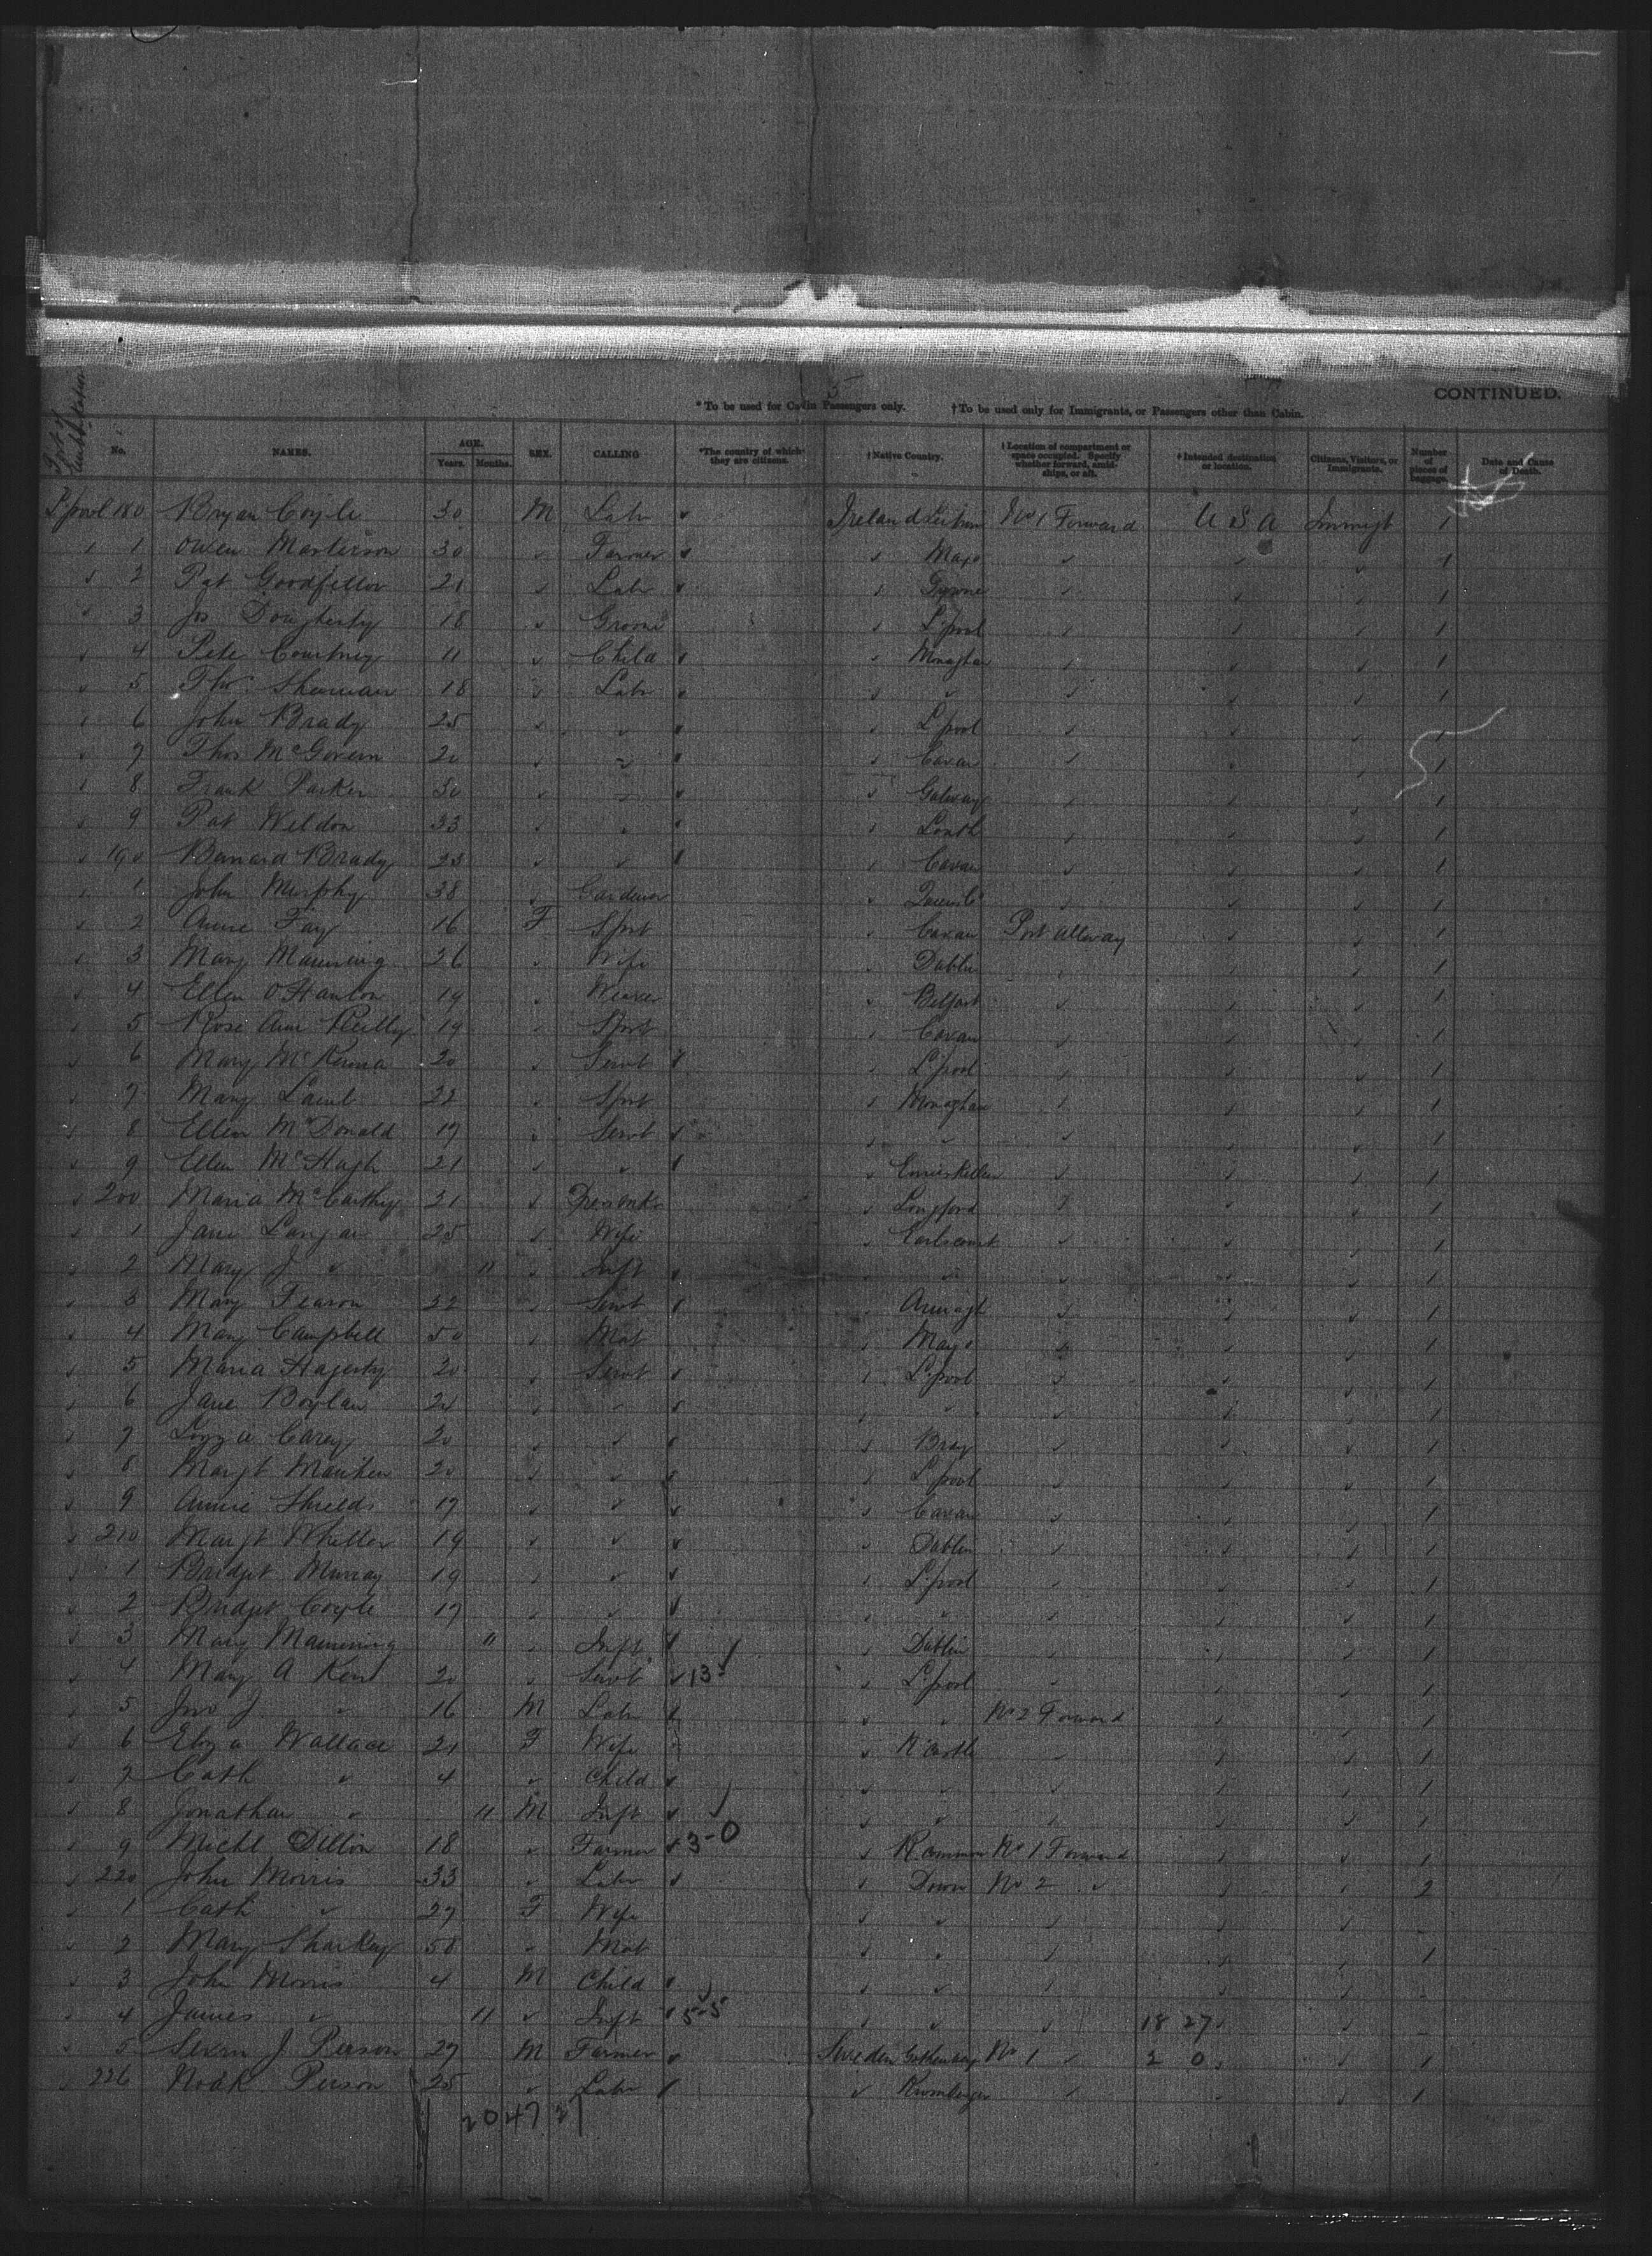 5
CONTINUED.
*To be used for Cabin Passengers only. †To be used only for Immigrants, or Passengers other than Cabin.
Port of Embarkation No. NAMES. AGE. Years. Months. SEX. CALLING *The country of which they are citizens. †Native Country. †Location of compartment or space occupied. Specify whether forward, amidships, or aft. †Intended destination or location. Citizens, Visitors, or Immigrants. Number of pieces of baggage. Date and Cause of Death.
L'pool 180 Bryan Coyle 30 M Labr Ireland Leitrim No 1 Forward U S A Immigt 1
1 Owen Masterson 30 Farmer Mayo 1
2 Pat Goodfellow 21 Labr Tyrone 1
3 Jos Dougherty 18 Groom L'pool 1
4 Pete Courtney 11 Child Monaghan 1
5 Thos 18 Labr 1
6 John Brady 25 L'pool 1
7 Thos McGovern 20 Cavan 1
8 Frank Parker 30 Galway 1
9 Pat Weldon 33 Louth 1
190 Bernard Brady 23 Cavan 1
1 John Murphy 38 Gardener Queens Co 1
2 Annie Fay 16 F Spst Cavan Port alleway 1
3 Mary Manning 26 Wife Dublin 1
4 Ellen O'Hanlon 19 Weaver Belfast 1
5 Rose Ann Reilly 19 Spst Cavan 1
6 Mary McKenna 20 Servt L'pool 1
7 Mary Lamb 22 Spst Monaghan 1
8 Ellen McDonald 17 Servt 1
9 Ellen McHugh 21 Enniskillen 1
200 Maria McCarthy 31 Longford 1
1 Jane Langan 25 Wife 1
2 Mary J 11 Inft 1
3 Mary Fearon 32 Servt Armagh 1
4 Mary Campbell 50 Mat Mayo 1
5 Maria Hagerty 20 Servt L'pool 1
6 Jane Boylan 24 1
7 Lizzie Carey 20 Bray 1
8 Margt 20 L'pool 1
9 Annie Shields 17 Cavan 1
210 Margt Wheller 19 Dublin 1
1 Bridget Murray 19 L'pool 1
2 Bridget Coyle 17 1
3 Mary Manning 11 Inft Dublin 1
4 Mary A Kent 20 Servt 13 L'pool 1
5 Jno J 16 M Labr No 2 Forward 1
6 Eliza Wallace 21 F Wife N'castle 1
7 Cath 4 Child 1
8 Jonathan 11 M Inft 1
9 Michl Dillon 18 Farmer 3-0 R'common No 1 Forward 1
220 John Morris 33 Labr Down No 2 2
1 Cath 27 F Wife
2 Mary Sharkey 50 Mat 1
3 John Morris 4 M Child
4 James 11 Inft 5-5 18 27
5 J Person 27 M Farmer Sweden Gothenburg No 1 2 0 1
226 Person 25 Labr 1